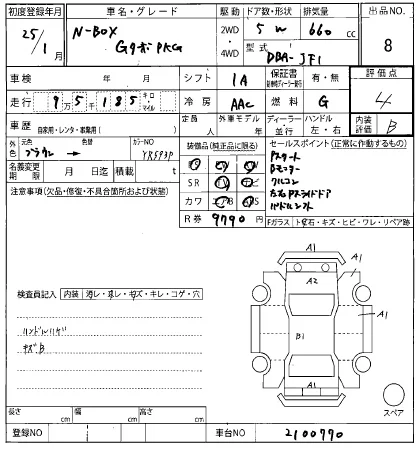 初度登録年月 車名・グレード 駆動 ドア数・形状 排気量 出品NO
25/1月 N-BOX Gターボ PKG 2WD・4WD 5W 660cc 8
型式 DBA-JF1
車検 年 月 シフト IA 保証書 有・無 評価点
走行 9万5千185 キロ・マイル 冷房 AAC 燃料 G 4
車歴 自家用・レンタ・事業用( ) 定員 人 外車モデル 年 ディーラー・並行 ハンドル 左・右 内装評価 B
外色 元色 ブラウン 色替 カラーNO YR593P
装備品(純正品に限る) セールスポイント(正常に作動するもの)
名義変更期限 月 日迄 積載 t
Pスタート
Bモニター
クルコン
左右Pスライドドア
パドルシフト
注意事項(欠品・修復・不具合箇所および状態)
SR
カワ
R券 9790円
Fガラス 飛石・キズ・ヒビ・ワレ・リペア跡
検査員記入 内装 汚レ・スレ・キズ・キレ・コゲ・穴
ハンドルハゲ
キズB
A1
A1
A2
A1
B1
A1
スペア
長さ cm 幅 cm 高さ cm
登録NO 車台NO 2100790